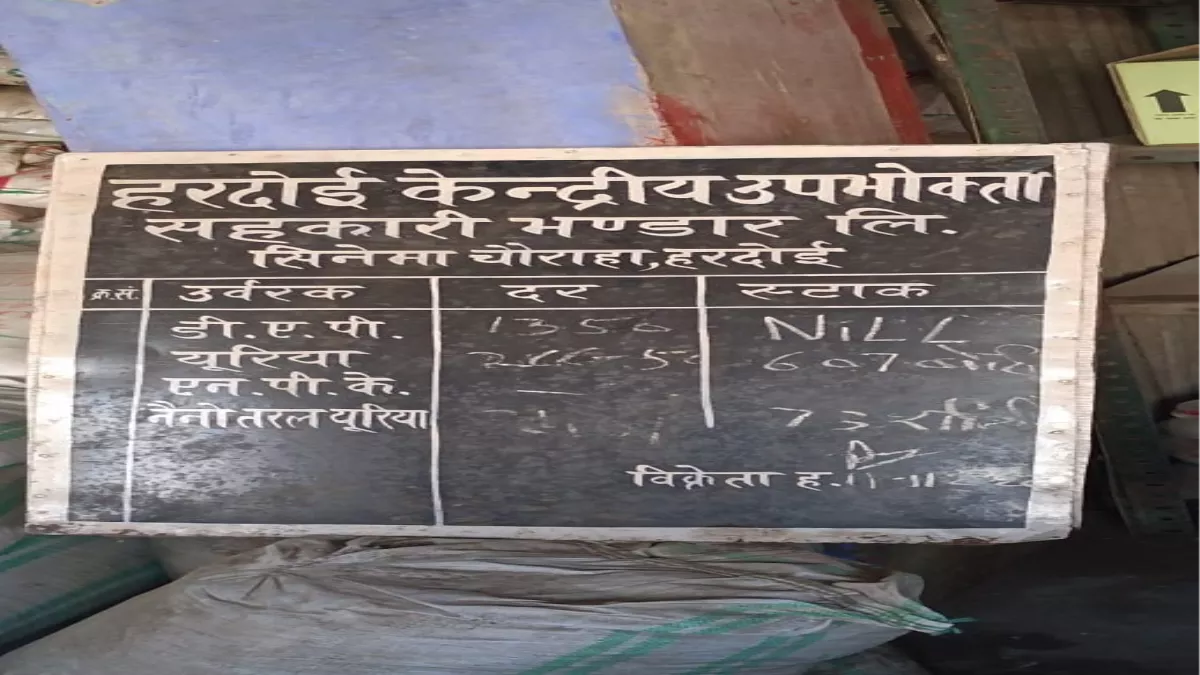 हरदोई केन्द्रीय उपभोक्ता
सहकारी भण्डार लि.
सिनेमा चौराहा,हरदोई
क्र.सं. उर्वरक दर स्टाक
डी.ए.पी. 1350 NiLL
यूरिया 266.50 607
एन.पी.के. —
नैनो तरल यूरिया 73
विक्रेता ह.